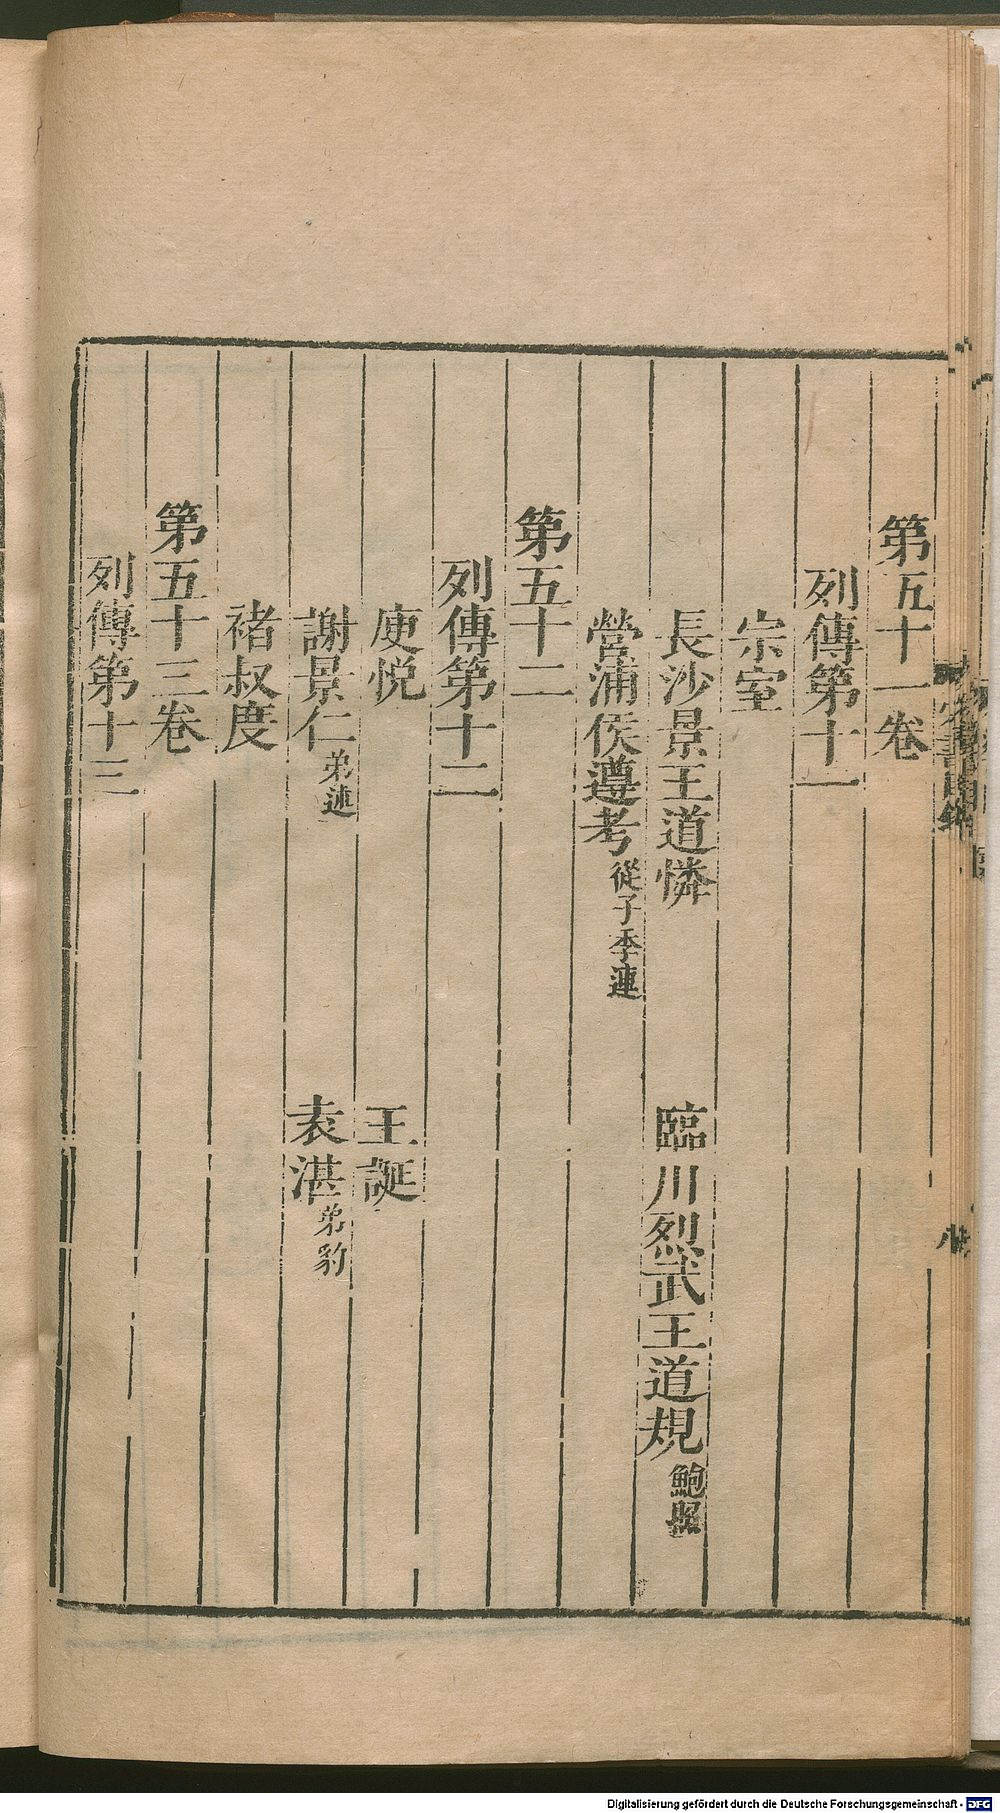 第五十一卷
列傳第十一
宗室
長沙景王道憐 臨川烈武王道規 鮑照
營浦侯遵考 從子季連
第五十二
列傳第十二
庾悅 王誕
謝景仁 弟述 袁湛 弟豹
褚叔度
第五十三卷
列傳第十三
Digitalisierung gefördert durch die Deutsche Forschungsgemeinschaft - DFG